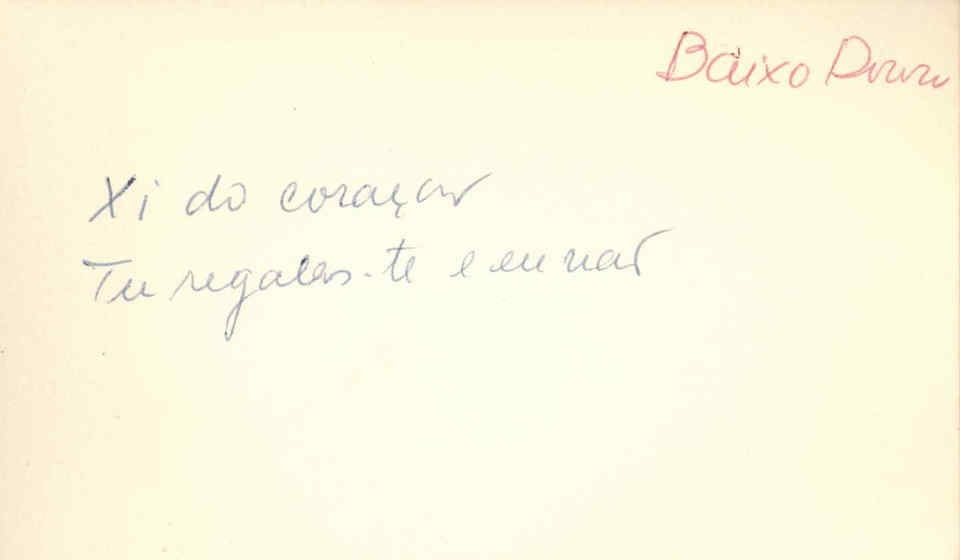 Baixo Douro
Xi do coração
Tu regalas-te e eu não